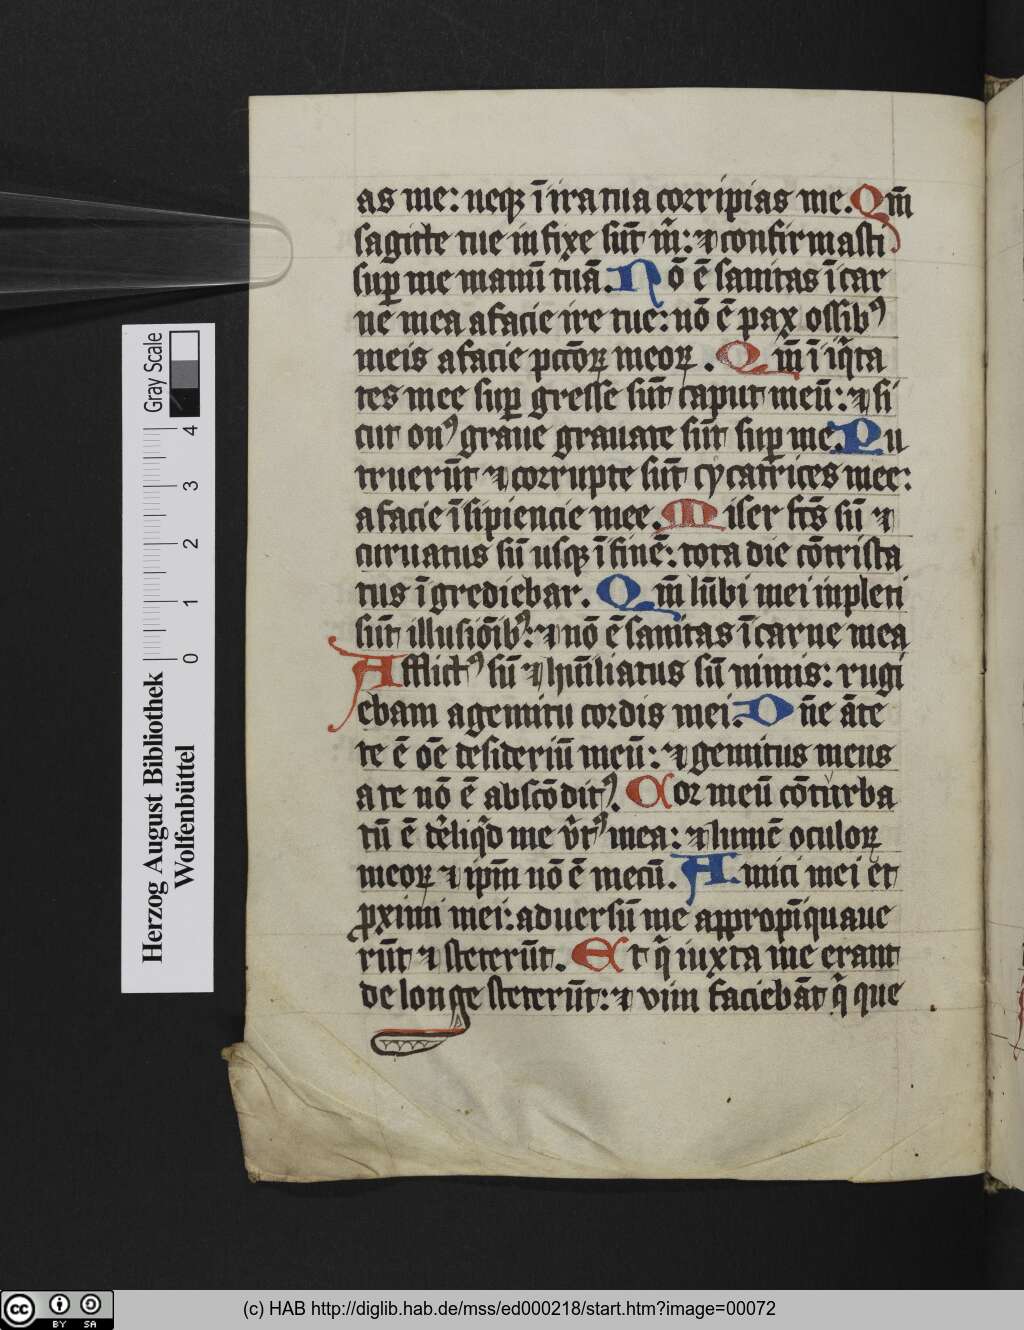 as me: neqꝫ ī ira tua corripias me. Qm̄
sagitte tue infixe sūt m̄: ⁊ confirmasti
suꝑ me manū tuā. Nō ē sanitas ī car
ne mea a facie ire tue: nō ē pax ossibꝰ
meis a facie pctōꝝ meoꝝ. Qm̄ ī iqͣta
tes mee suꝑ gresse sūt caput meū: ⁊ si
cut onꝰ graue grauate sūt suꝑ me. Pu
truerūt ⁊ corrupte sūt cycatrices mee:
a facie īsipiencie mee. Miser fc̄s sū ⁊
curuatus sū usqꝫ ī finē: tota die cōtrista
tus īgrediebar. Qm̄ lūbi mei inpleti
sūt illusiōibꝰ: ⁊ nō ē sanitas ī carne mea
Afflictꝰ sū ⁊ hūiliatus sū nimis: rugi
ebam a gemitu cordis mei. Dn̄e āte
te ē oē desideriū meū: ⁊ gemitus meus
a te nō ē abscōditꝰ. Cor meū cōturba
tū ē de̾liqͥd me v̄tꝰ mea: ⁊ lumē oculoꝝ
meoꝝ ⁊ ip̄m nō ē mecū. Amici mei et
ꝓximi mei: aduersū me appropīquaue
rūt ⁊ steterūt. Et qͥ iuxta me erant
de longe steterūt: ⁊ vim faciebāt qͥ que
Gray Scale
0 1 2 3 4
Herzog August Bibliothek
Wolfenbüttel
cc BY SA
(c) HAB http://diglib.hab.de/mss/ed000218/start.htm?image=00072